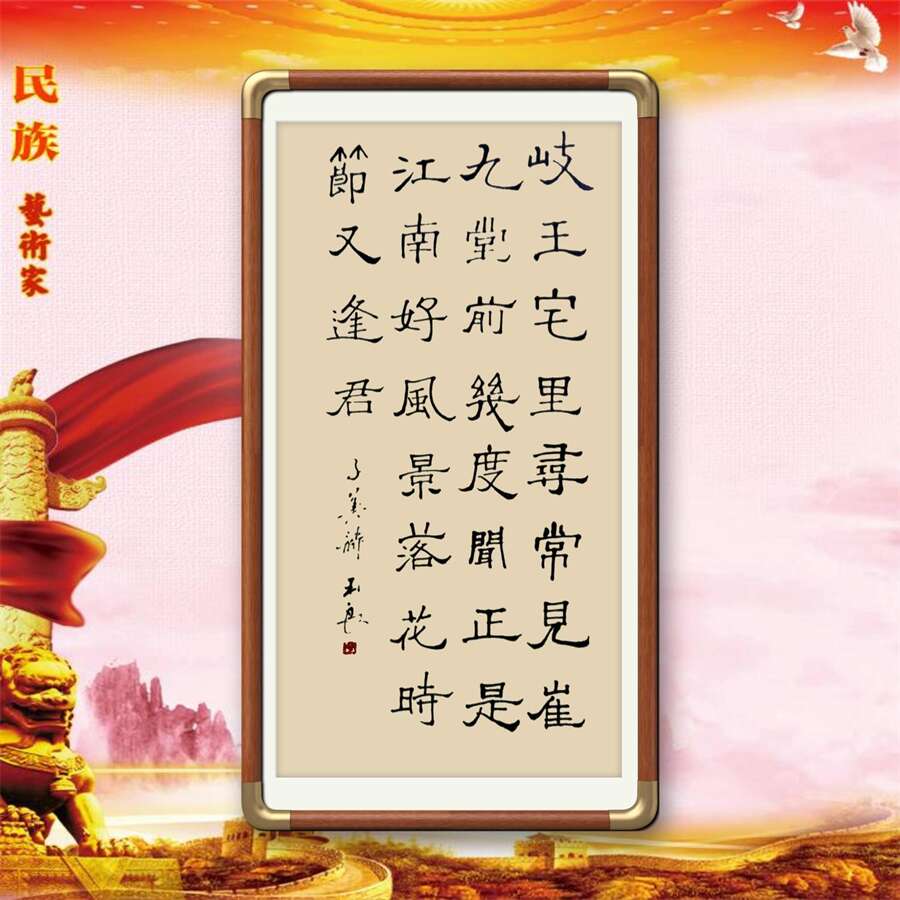 民族
藝術家
岐王宅里尋常見崔
九堂前幾度聞正是
江南好風景落花時
節又逢君
子美詩